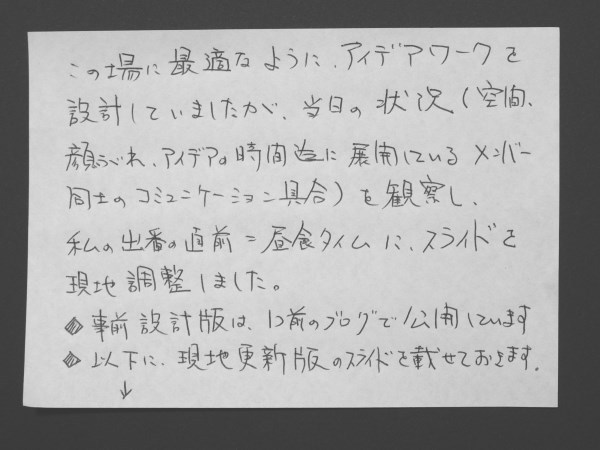 この場に最適なように、アイデアワークを
設計していましたが、当日の状況(空間、
顔ぶれ、アイデアの時間迄に展開している メンバー
同士のコミュニケーション具合)を観察し、
私の出番の直前=昼食タイムに、スライドを
現地調整しました。
◆事前設計版は、1つ前のブログで公開しています
◆以下に、現地更新版のスライドを載せておきます。
↓